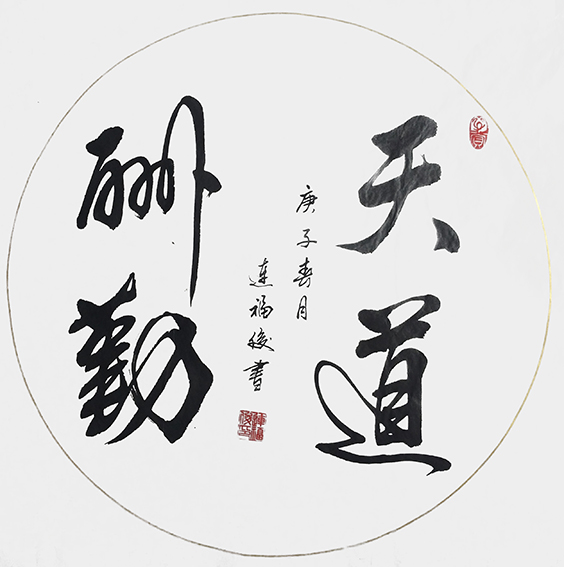 天道
酬勤
庚子春月
连福俊书